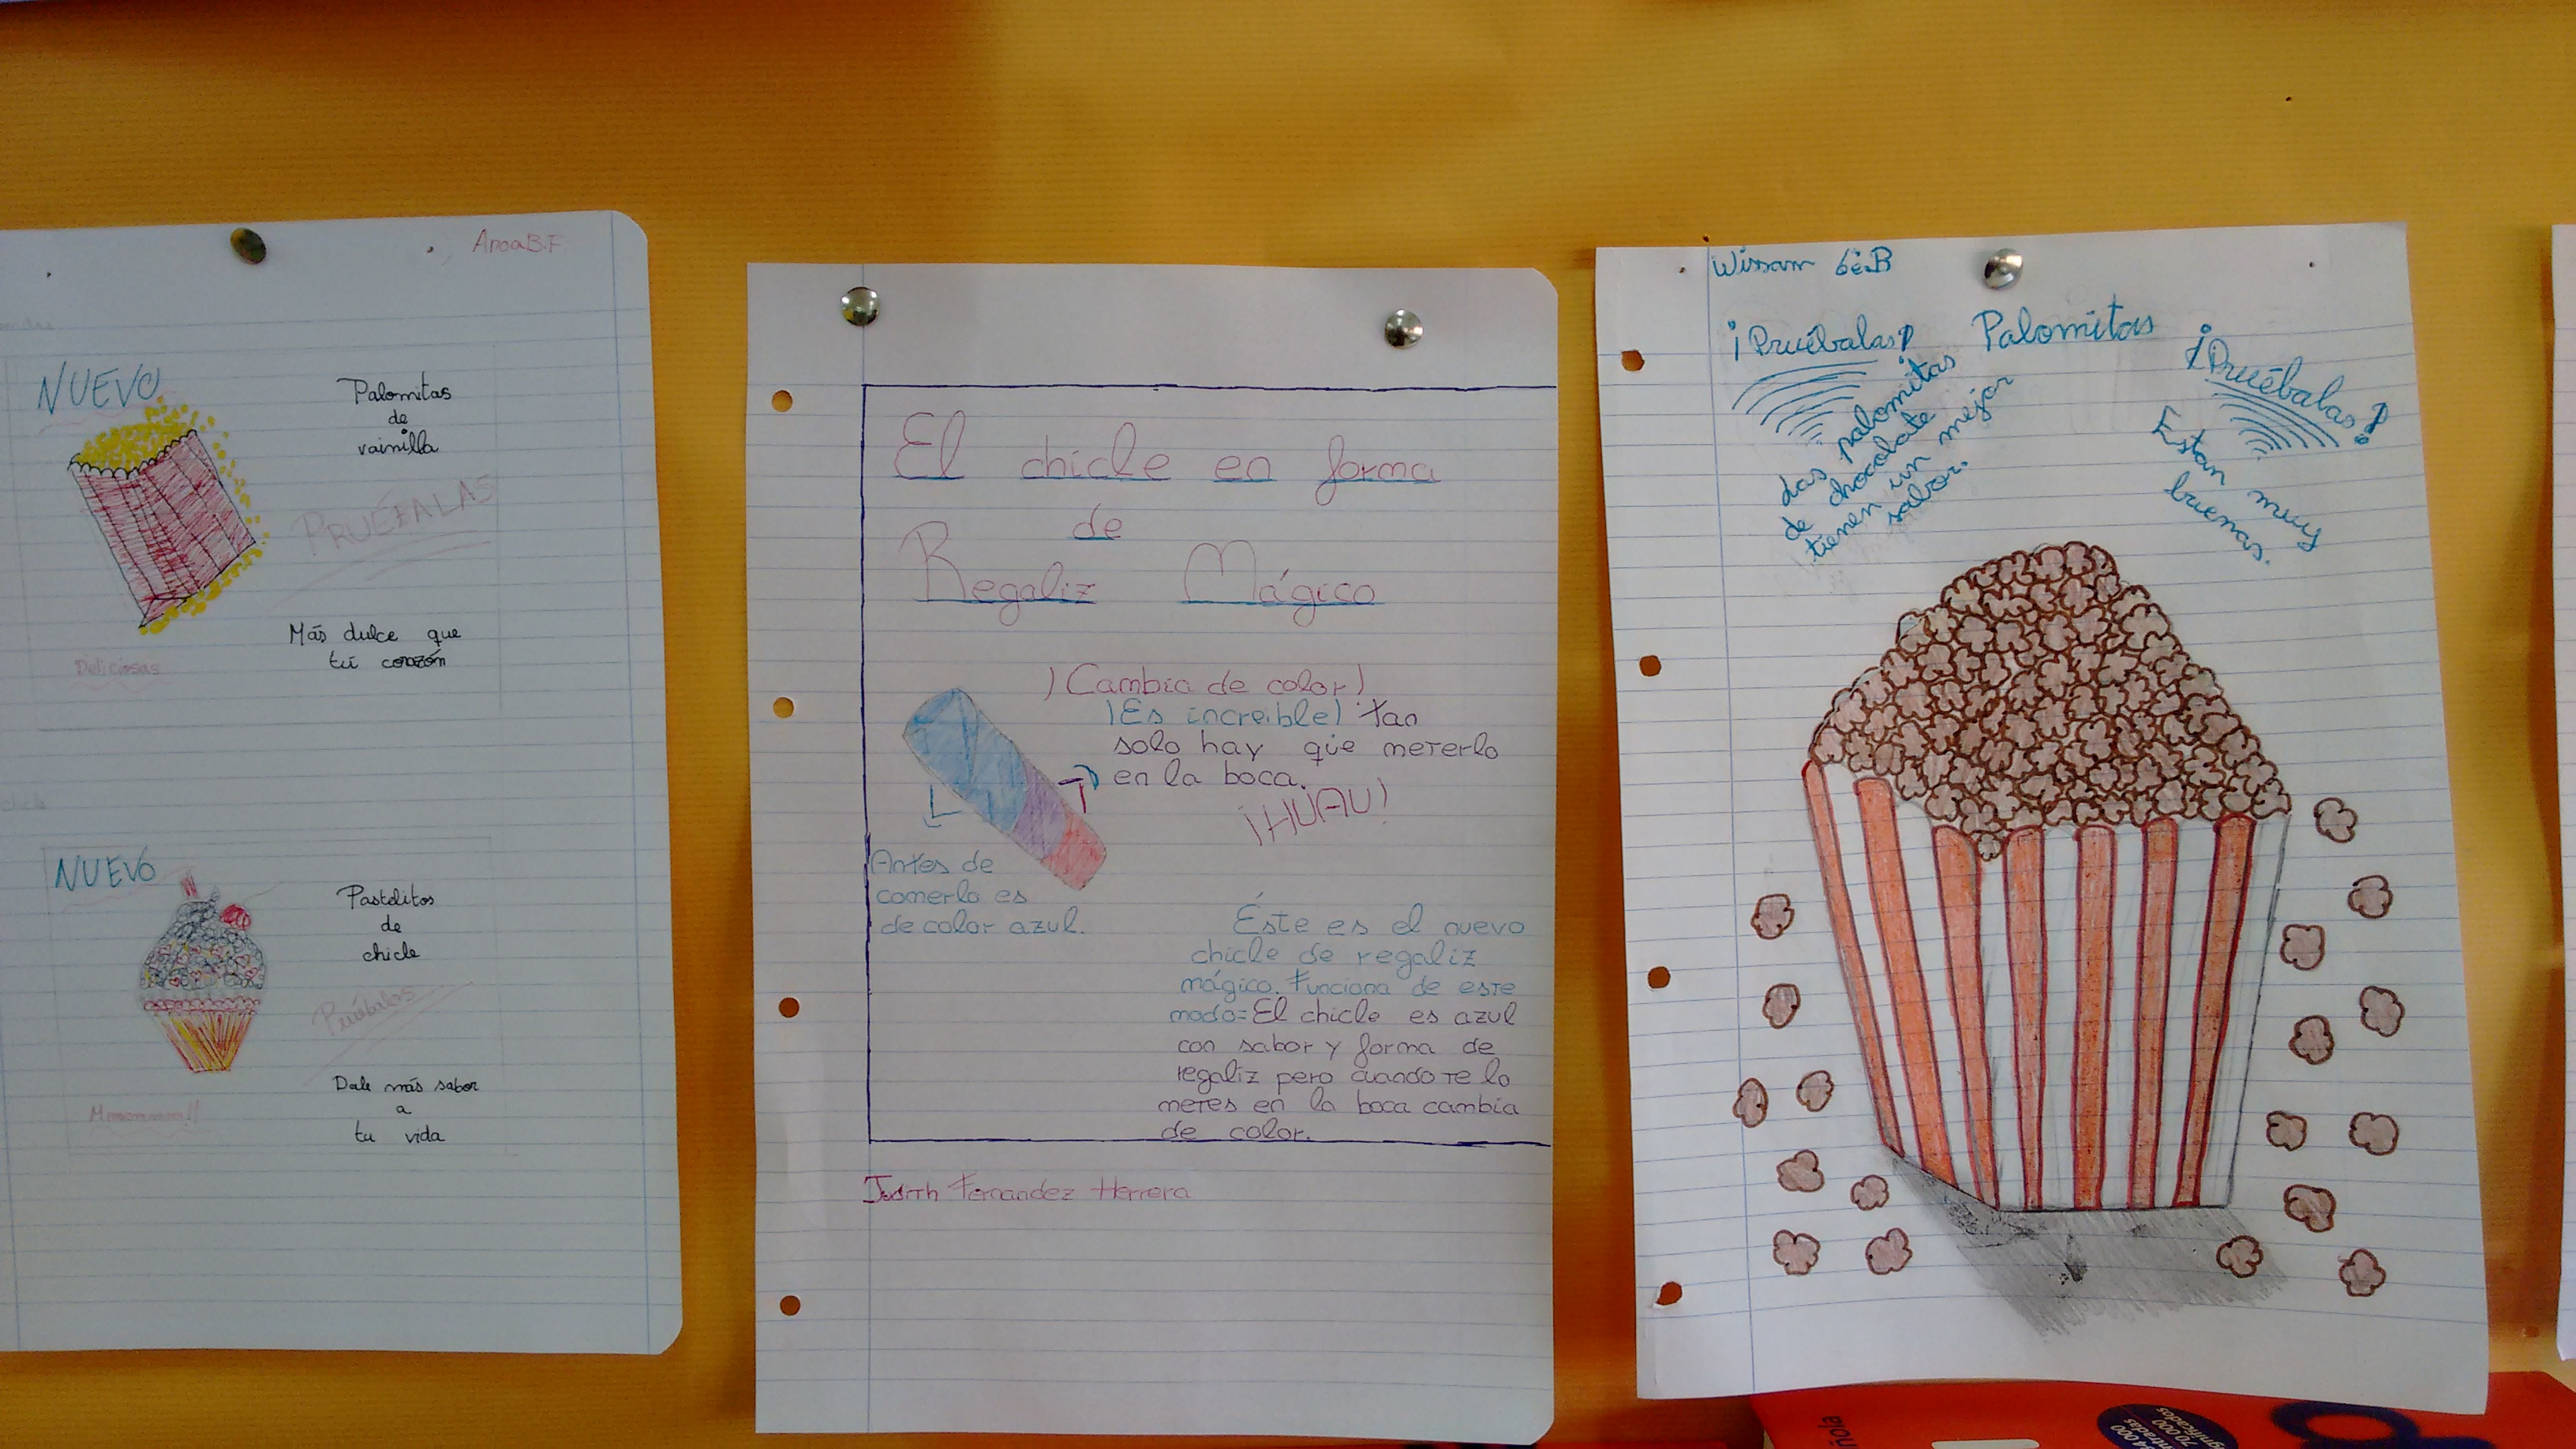 AnoaB.F
NUEVO
Palomitas
de
vainilla
PRUÉBALAS
Más dulce que
tú corazón
Deliciosas
NUEVO
Pastelitos
de
chicle
Pruébalos
Dale más sabor
a
tu vida
Mmmmmm!!
El chicle en forma
de
Regaliz Mágico
¡Cambia de color!
¡Es increible! tan
solo hay que meterlo
en la boca.
¡HUAU!
Antes de
comerlo es
de color azul.
Éste es el nuevo
chicle de regaliz
mágico. Funciona de este
modo=El chicle es azul
con sabor y forma de
regaliz pero cuando te lo
metes en la boca cambia
de color.
Judith Fernandez Herrera
Wissam 6è.B
Palomitas
¡Pruébalas!
Las palomitas
de chocolate
tienen un mejor
sabor.
¡Pruébalas!
Estan muy
buenas.
70.000